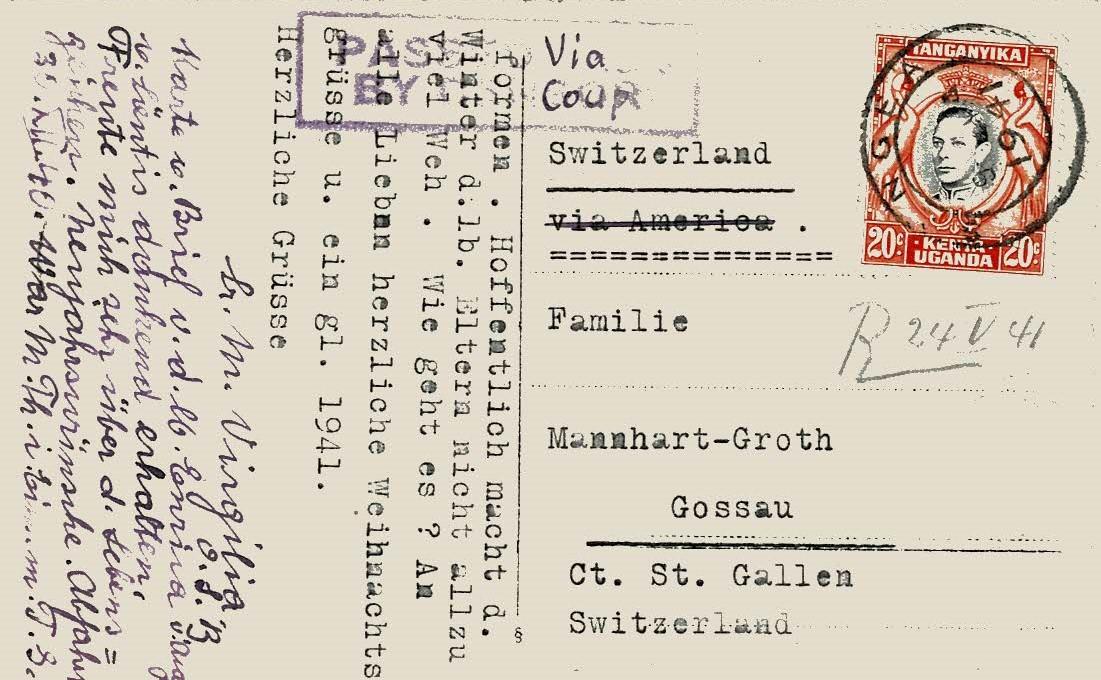 formen . Hoffentlich macht d.
Winter d.lb. Eltern nicht allzu
viel Weh . Wie geht es ? An
alle Lieben herzliche Weihnachts
grüsse u. ein gl. 1941.
Herzliche Grüsse
Sr. M. Virgilia,
O.S.B
Karte u. Brief v. d. lb.
v. Säntis dankend erhalten,
Freute mich sehr über d. Lebens=
zeichen. Neujahrswünsche.
PASSED
BY CENSOR
Via
Coup
Switzerland
via America .
Familie
Mannhart-Groth
Gossau
Ct. St. Gallen
Switzerland
§
TANGANYIKA
20c KENYA UGANDA 20c
R 24 V 41